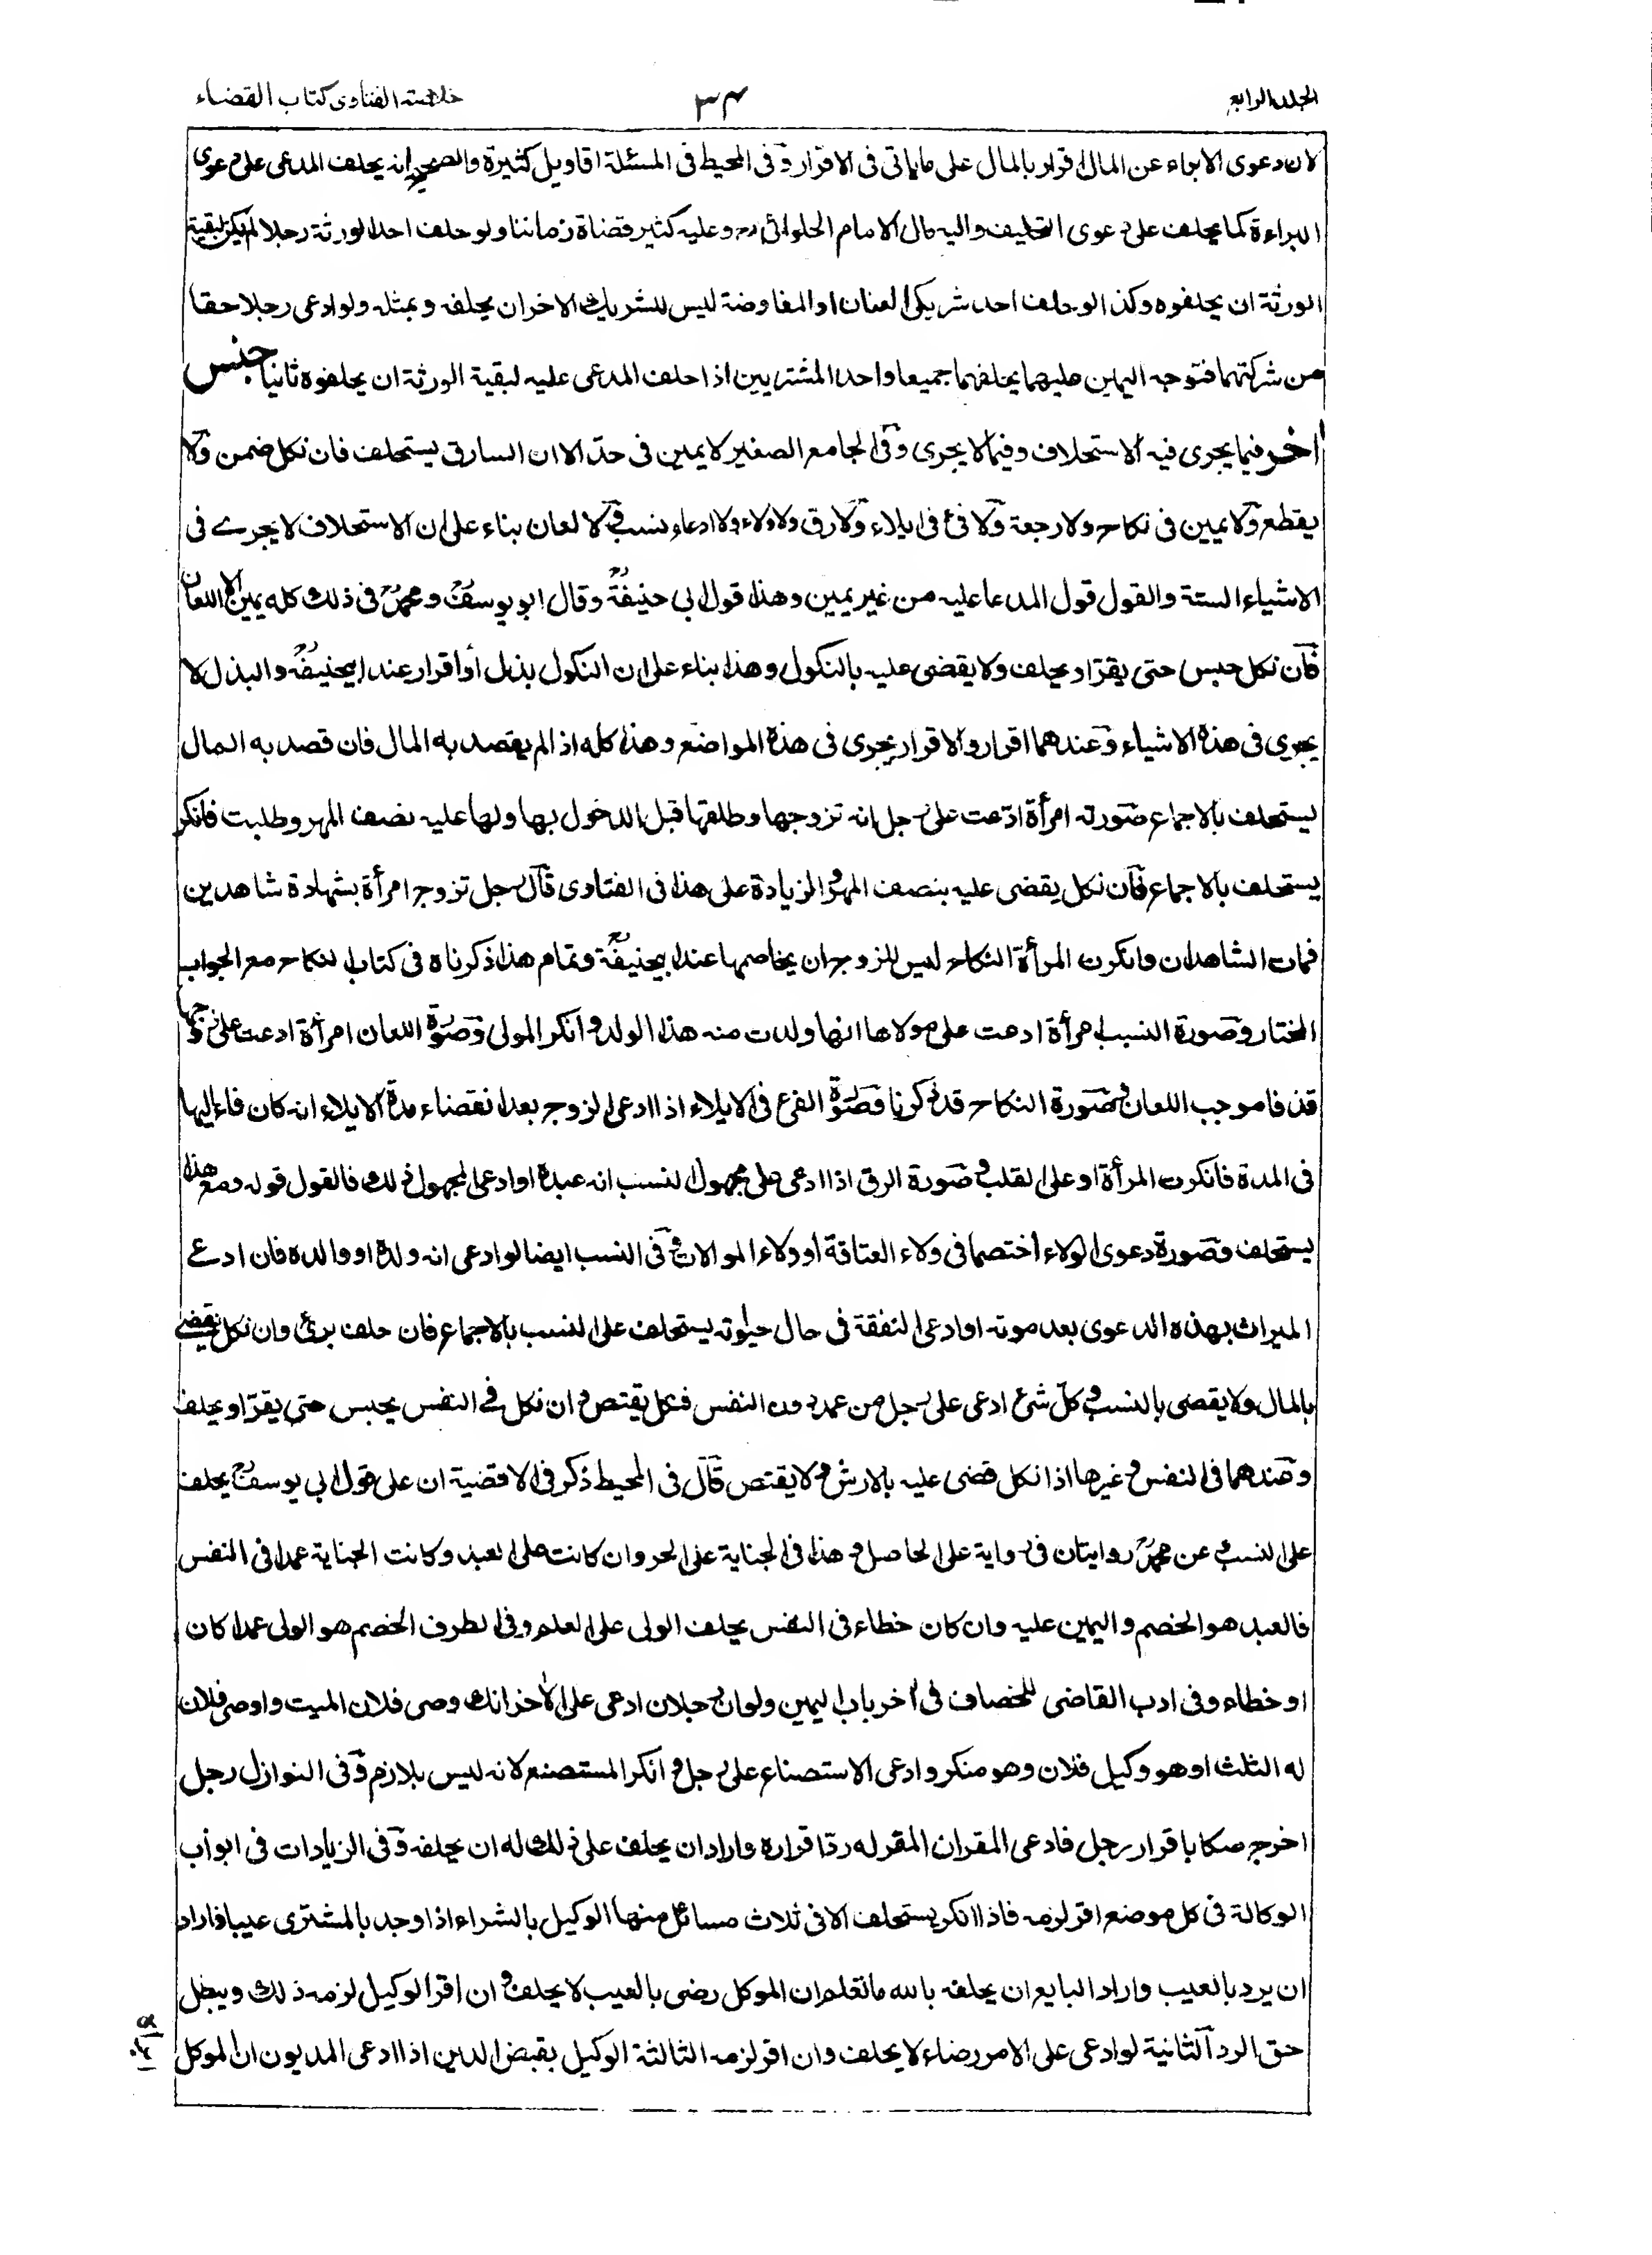 الجلد الرابع
٣٤
خلاصة الفتاوى كتاب القضاء
لان دعوى الابراء عن المال اقرار بالمال على ماياتى فى الاقرار وفى المحيط فى المسئلة اقاويل كثيرة والصحيح انه يحلف المدعى على دعوى
البراءة كما يحلف على دعوى التحليف واليه مال الامام الحلوائى رح وعليه كثير قضاة زماننا ولو حلف احد الورثة رجلا لم يكن لبقية
الورثة ان يحلفوه وكذا لو حلف احد شريكى العنان او المفاوضة ليس للشريك الاخر ان يحلفه وبمثله ولو ادعى رجلا حقا
من شركتهما فتوجه اليمين عليهما يحلفهما جميعا واحد المشتريين اذا حلف المدعى عليه لبقية الورثة ان يحلفوه ثانيا جنس
اخر فيما يجرى فيه الاستحلاف وفيما لا يجرى وفى الجامع الصغير لا يمين فى حد الا ان السارق يستحلف فان نكل ضمن ولا
يقطع ولا يمين فى نكاح ولا رجعة ولا فئ فى ايلاء ولا رق ولا ولاء ولا ادعاء نسب ولا لعان بناء على ان الاستحلاف لا يجرے فى
الاشياء الستة والقول قول المدعا عليه من غير يمين وهذا قول ابى حنيفةؒ وقال ابو يوسفؒ ومحمدؒ فى ذلك كله يمين الا اللعان
فان نكل حبس حتى يقر او يحلف ولا يقضى عليه بالنكول وهذا بناء على ان النكول بذل او اقرار عند ابيحنيفةؒ والبذل لا
يجرى فى هذه الاشياء وعندهما اقرار والاقرار يجرى فى هذه المواضع وهذا كله اذا لم يقصد به المال فان قصد به المال
يستحلف بالاجماع صورته امرأة ادعت على رجل انه تزوجها وطلقها قبل الدخول بها ولها عليه نصف المهر وطلبت فانكر
يستحلف بالاجماع فان نكل يقضى عليه بنصف المهر والزيادة على هذا فى الفتاوى قال رجل تزوج امرأة بشهادة شاهدين
فمات الشاهدان وانكرت المرأة النكاح ليس للزوج ان يخاصمها عند ابيحنيفةؒ وتمام هذا ذكرناه فى كتاب النكاح مع الجواب
المختار وصورة النسب امرأة ادعت على مولاها انها ولدت منه هذا الولد وانكر المولى وصورة اللعان امرأة ادعت على زوجها
قذفا موجب اللعان وصورة النكاح قد ذكرنا وصورة الفئ فى الايلاء اذا ادعى الزوج بعد انقضاء مدة الايلاء انه كان فاء اليها
فى المدة فانكرت المرأة او على القلب وصورة الرق اذا ادعى على مجهول النسب انه عبده او ادعى المجهول ذلك فالقول قوله ومع هذا
يستحلف وصورة دعوى الولاء اختصما فى ولاء العتاقة او ولاء الموالات وفى النسب ايضا لو ادعى انه ولده او والده فان ادعے
الميراث بهذه الدعوى بعد موته او ادعى النفقة فى حال حيوته يستحلف على النسب بالاجماع فان حلف برئ وان نكل يقضے
بالمال ولا يقضى بالنسب وكل شئ ادعى على رجل من عمد دون النفس فنكل يقتص وان نكل فے النفس يحبس حتى يقر او يحلف
وعندهما فى النفس وغيرها اذا نكل قضى عليه بالارش ولا يقتص قال فى المحيط ذكر فى الاقضية ان على قول ابى يوسفؒ يحلف
على النسب وعن محمدؒ روايتان فى رواية على الحاصل وهذا فى الجناية على الحر وان كانت على العبد وكانت الجناية عمدا فى النفس
فالعبد هو الخصم واليمين عليه وان كان خطاء فى النفس يحلف الولى على العلم وفى الطرف الخصم هو الولى عمدا كان
او خطاء وفى ادب القاضى للخصاف فى اخر باب اليمين ولو ان رجلان ادعى على الاخر انك وصى فلان الميت واوصى فلان
له الثلث او هو وكيل فلان وهو منكر وادعى الاستصناع على رجل وانكر المستصنع لانه ليس بلازم وفى النوازل رجل
اخرج صكا باقرار رجل فادعى المقر ان المقر له رد اقراره واراد ان يحلف على ذلك له ان يحلفه وفى الزيادات فى ابواب
الوكالة فى كل موضع اقر لزمه فاذا انكر يستحلف الا فى ثلاث مسائل منها الوكيل بالشراء اذا وجد بالمشترى عيبا فاراد
ان يرد بالعيب واراد البايع ان يحلفه بالله ماتعلم ان الموكل رضى بالعيب لا يحلف وان اقر الوكيل لزمه ذلك ويبطل
حق الرد الثانية لو ادعى على الامر رضاء لا يحلف وان اقر لزمه الثالثة الوكيل بقبض الدين اذا ادعى المديون ان الموكل